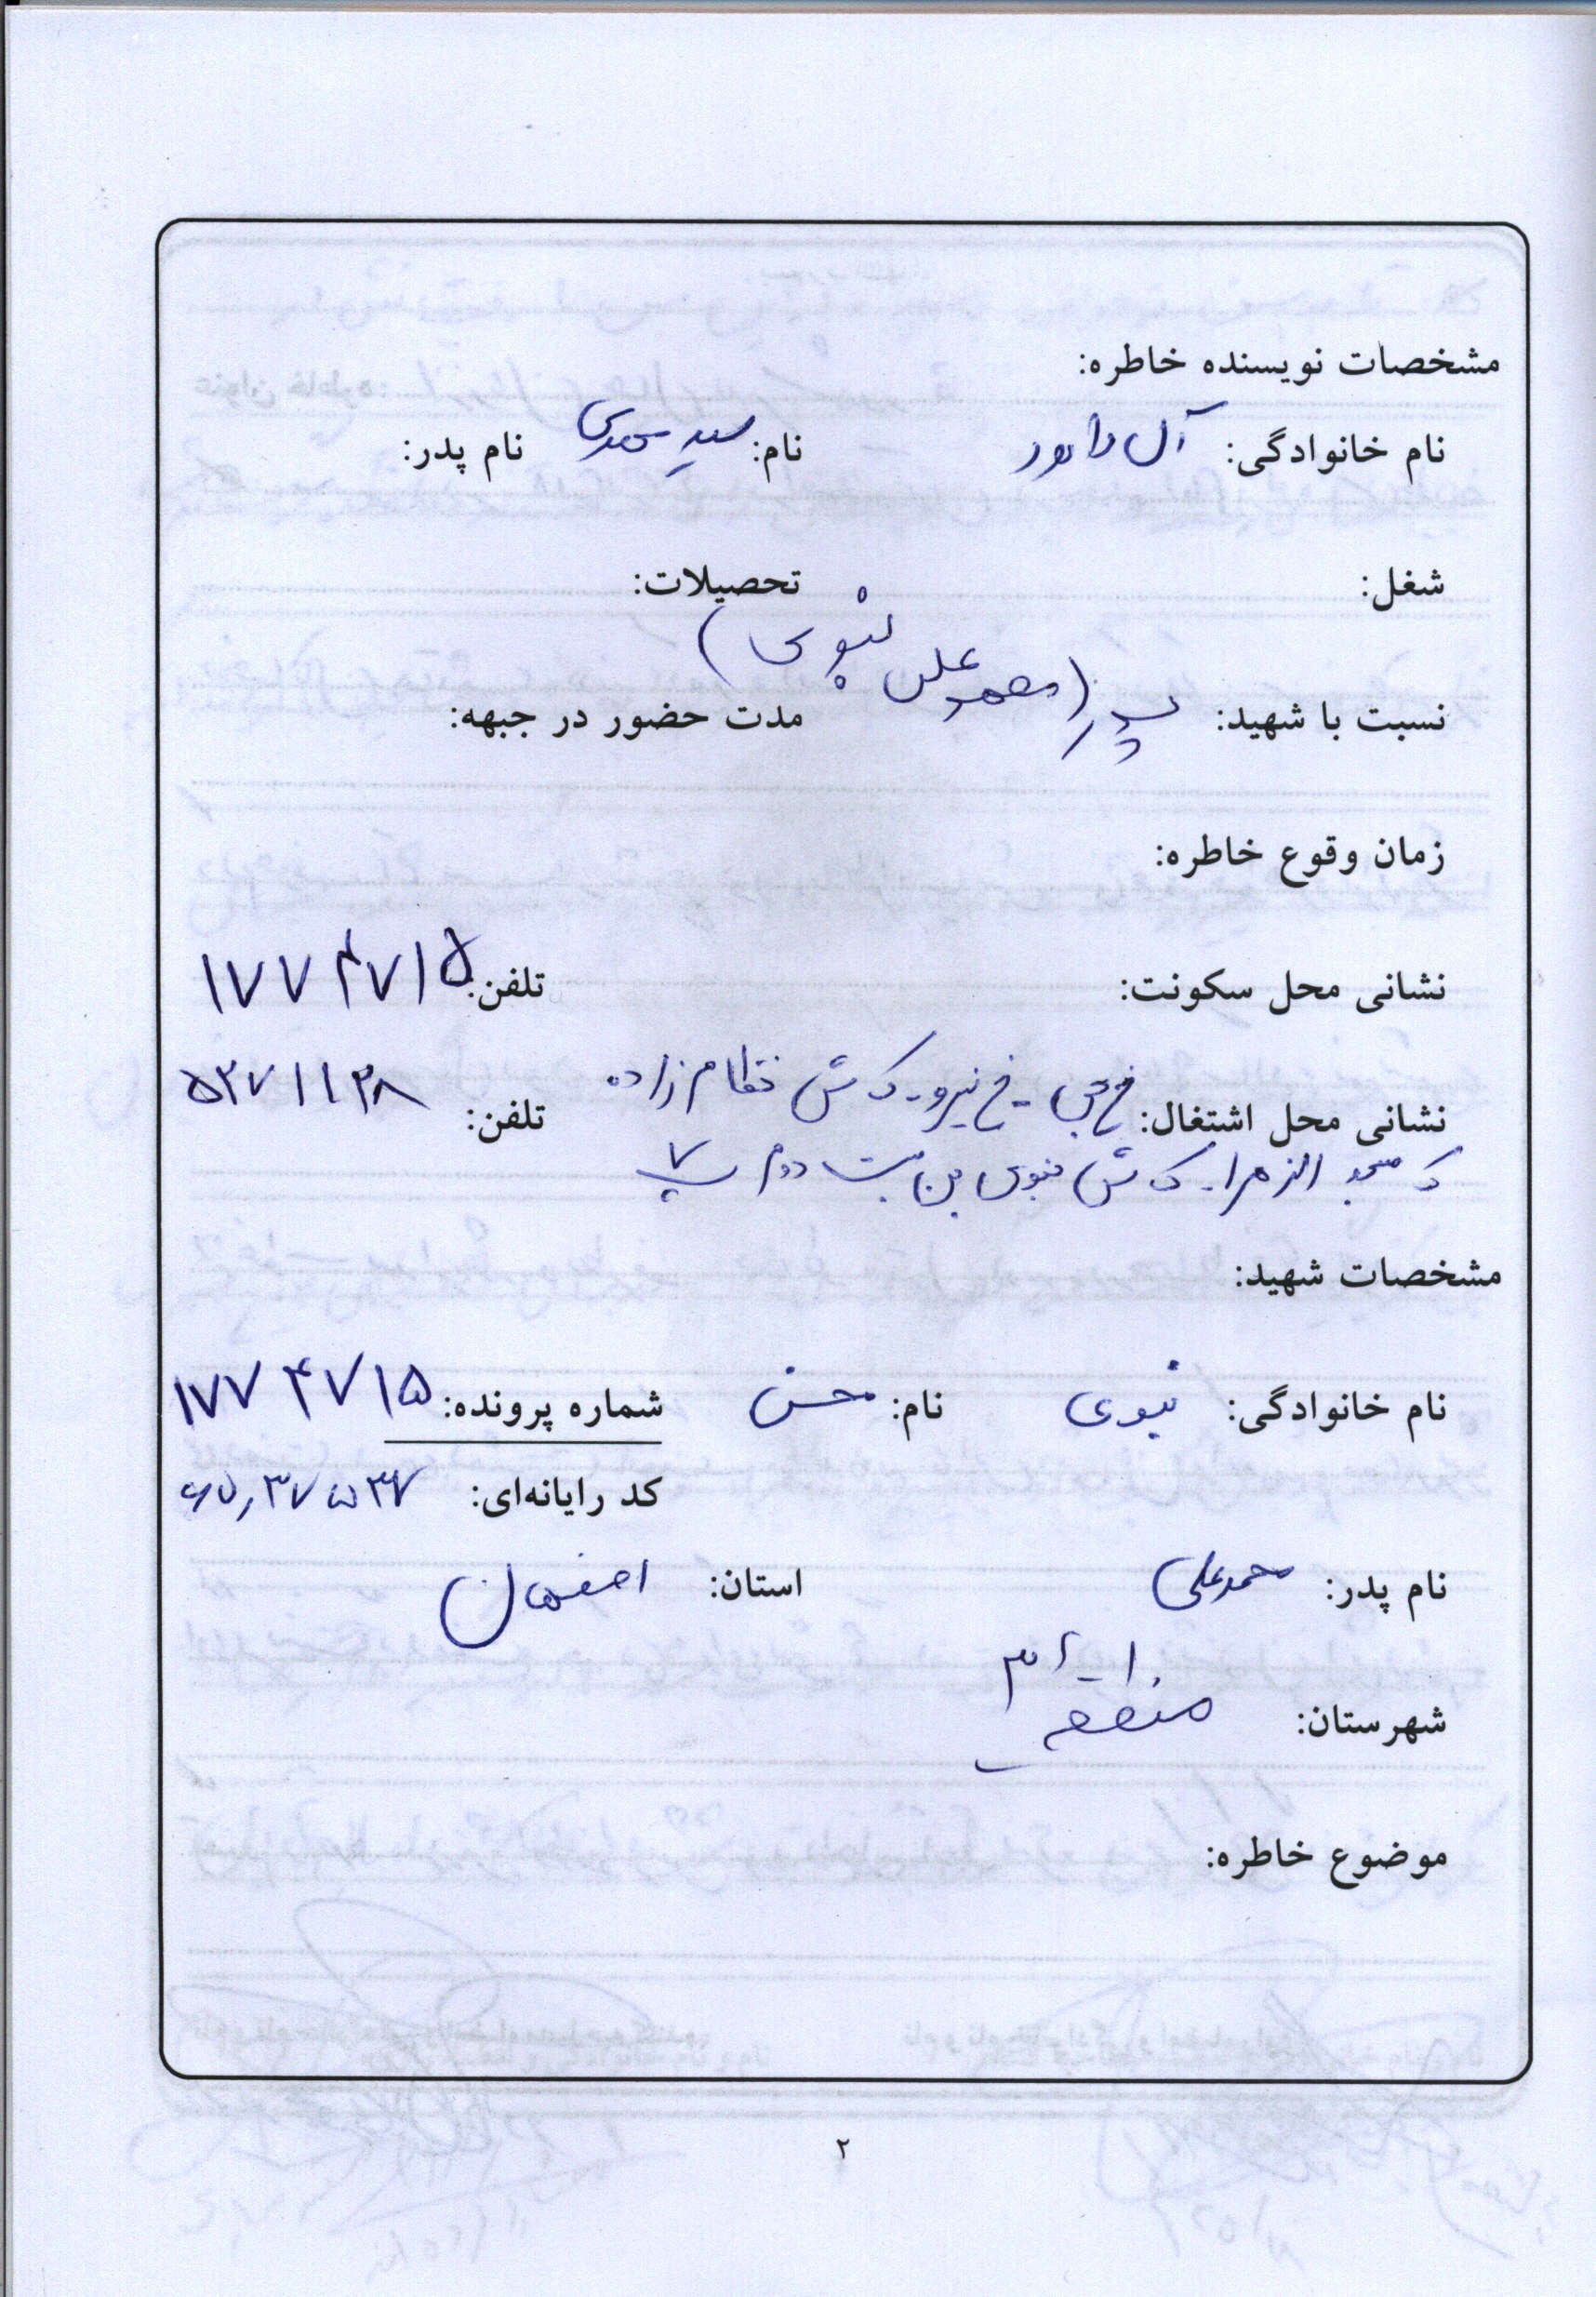 مشخصات نویسنده خاطره:
نام خانوادگی: آل داود نام: سید مهدی نام پدر:
شغل: تحصیلات:
نسبت با شهید: پدر (محمدعلی نبوی) مدت حضور در جبهه:
زمان وقوع خاطره:
نشانی محل سکونت: تلفن: ۱۷۷۴۷۱۵
نشانی محل اشتغال: خ خ نیرو - ک ش نظام زاده تلفن: ۵۲۷۱۱۳۸
ک مسجد الزهرا - ک ش نبوی بن بست دوم پ ۷
مشخصات شهید:
نام خانوادگی: نبوی نام: حسن شماره پرونده: ۱۷۷۴۷۱۵
کد رایانه‌ای:
نام پدر: محمدعلی استان: اصفهان
شهرستان: منطقه ۳
موضوع خاطره:
۲